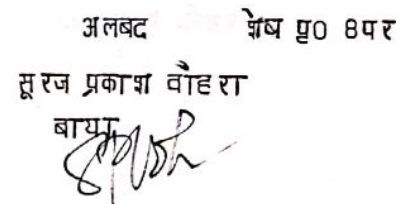 अलबद शेष पृ0 8पर
सूरज प्रकाश वौहरा
बाया